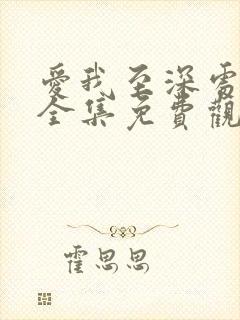 愛我至深電
全集免費觀
霍思思